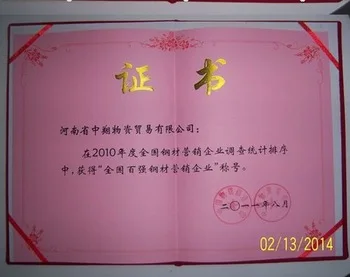 证书
河南省中翔物资贸易有限公司：
在2010年度全国钢材营销企业调查统计排序
中，获得“全国百强钢材营销企业”称号。
二〇一一年八月
02/13/2014